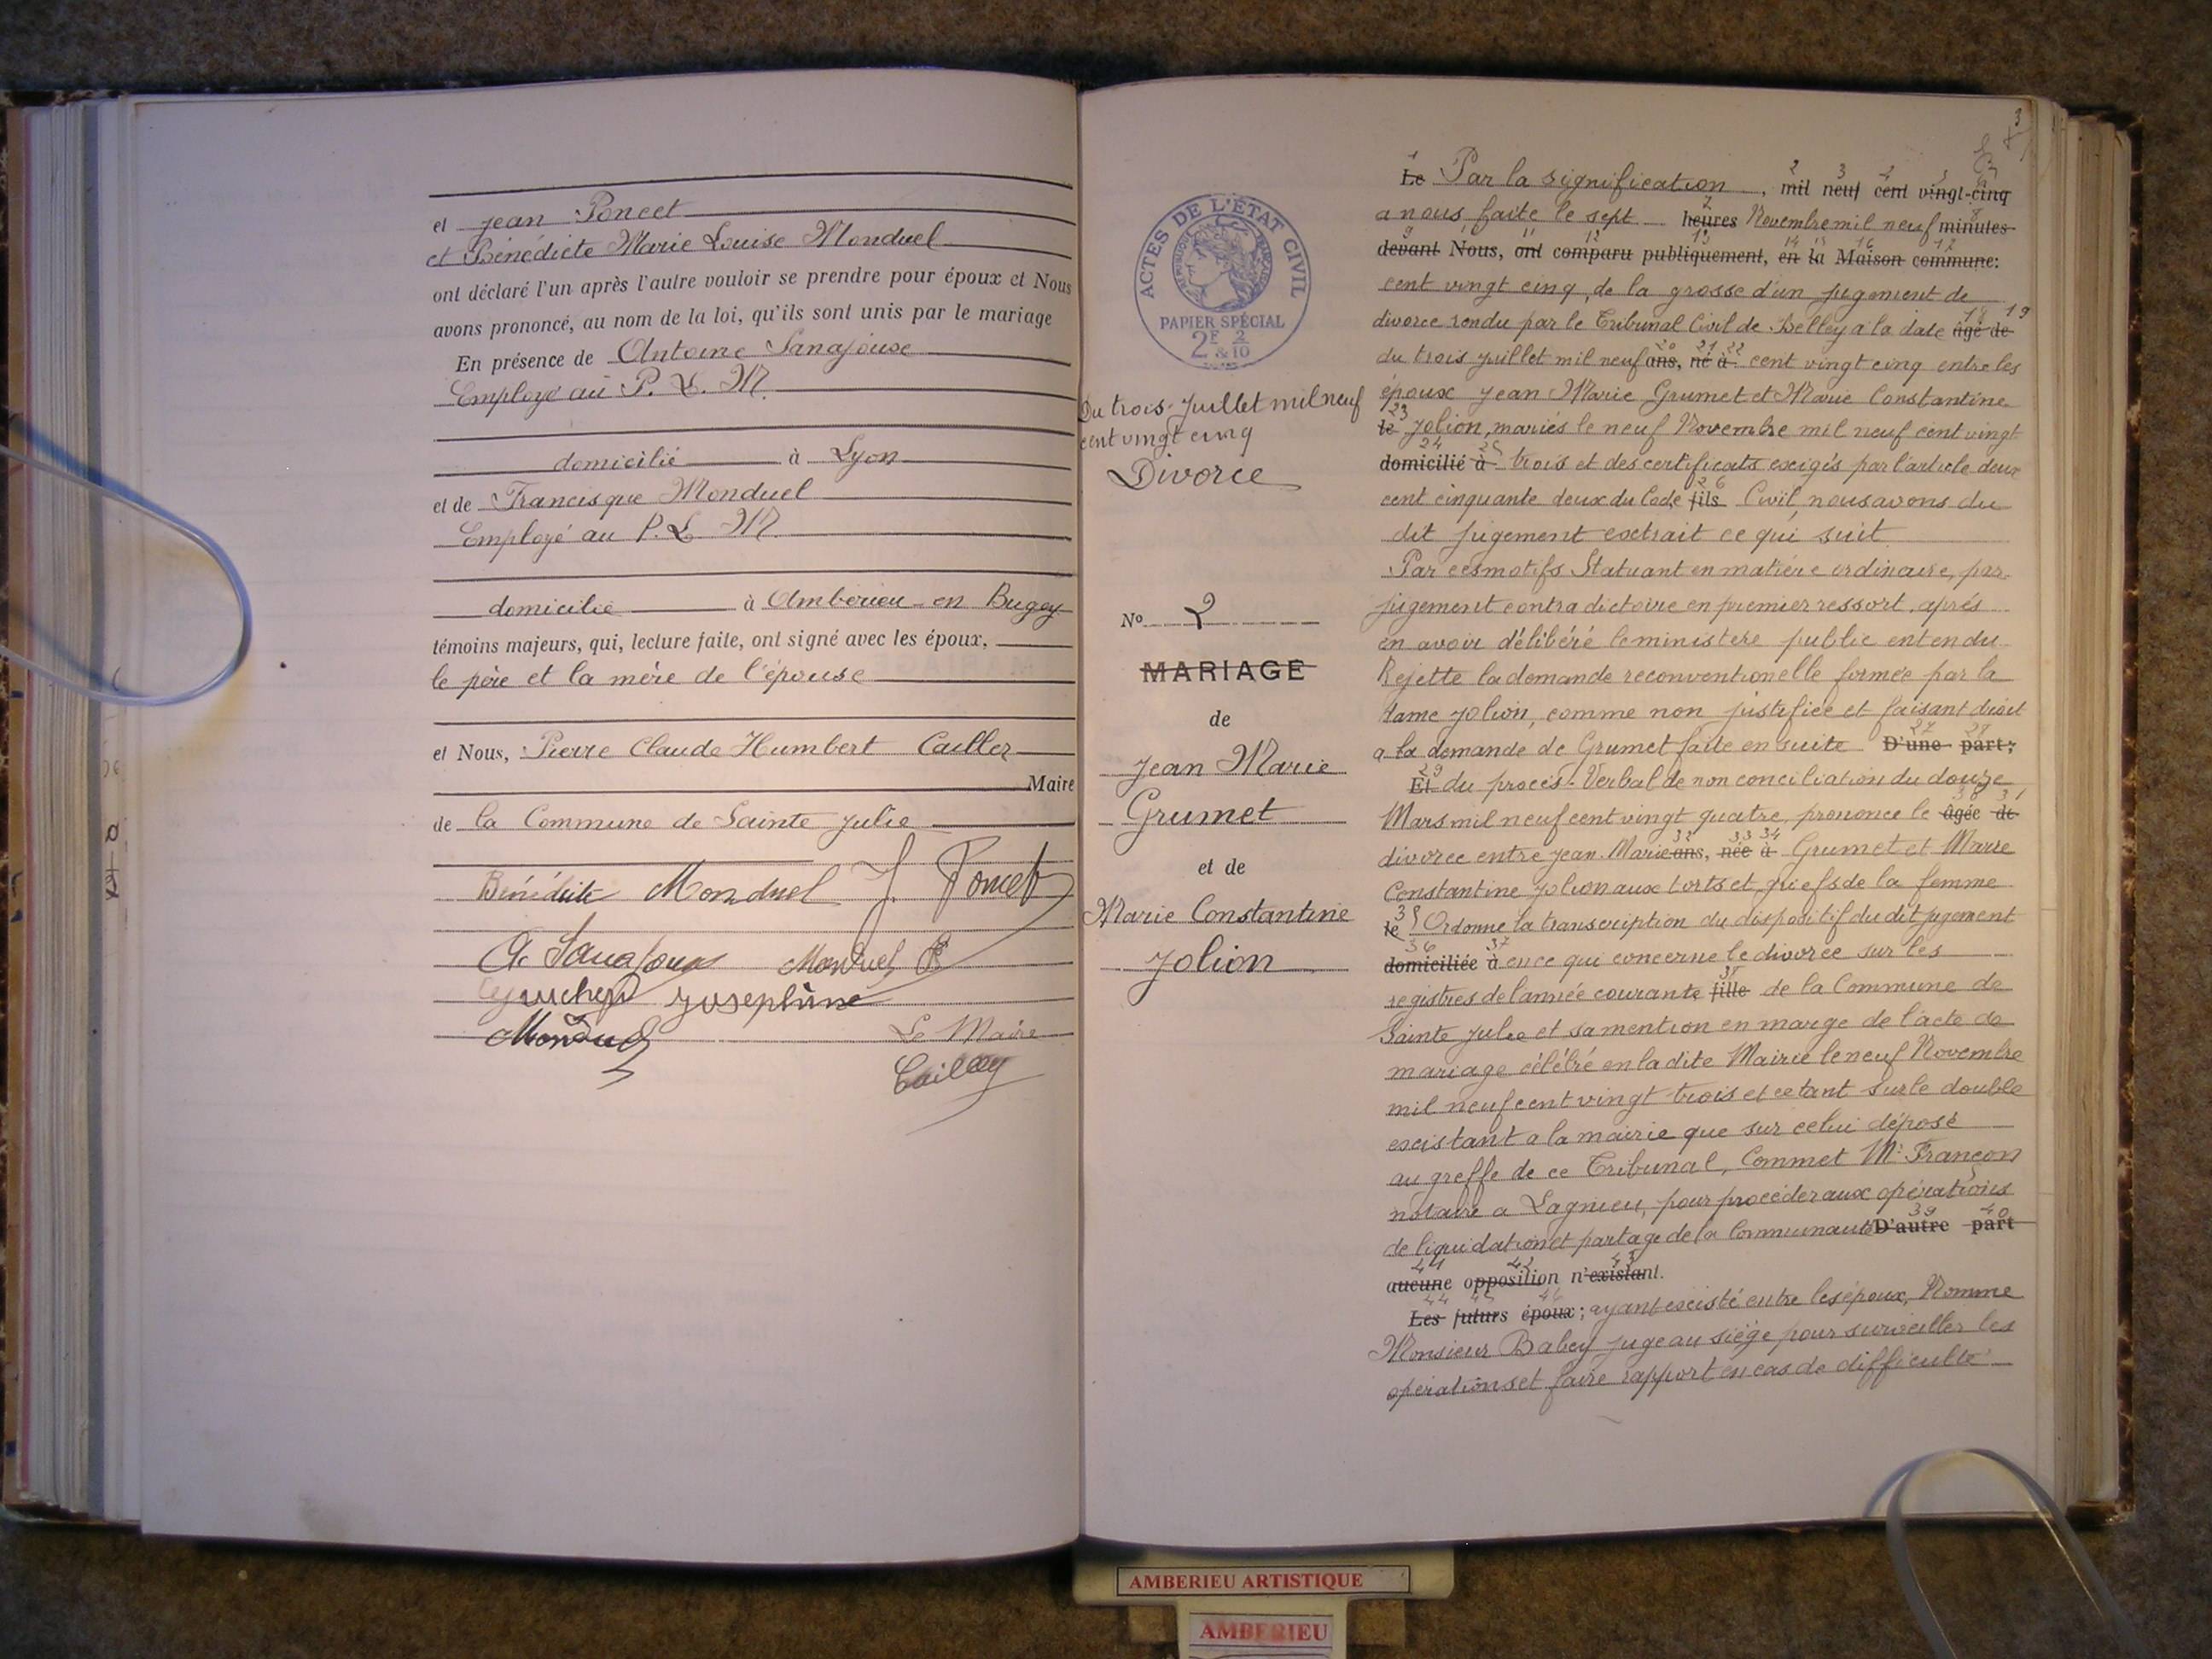 et Jean Poncet
et Bénédicte Marie Louise Monduel
ont déclaré l'un après l'autre vouloir se prendre pour époux et Nous
avons prononcé, au nom de la loi, qu'ils sont unis par le mariage
En présence de Antoine Sanajouse
Employé au P. L. M.
domicilié à Lyon
et de Francisque Monduel
Employé au P. L. M.
domicilié à Ambérieu-en Bugey
témoins majeurs, qui, lecture faite, ont signé avec les époux,
le père et la mère de l'épouse
et Nous, Pierre Claude Humbert Cailler
Maire
de la Commune de Sainte Julie
Bénédicte Monduel J. Poncet
Monduel
Joséphine
Monduel
Le Maire
Cailler
ACTES DE L'ÉTAT CIVIL
PAPIER SPÉCIAL
2F 2
& 10
Du trois Juillet mil neuf
cent vingt cinq
Divorce
No 2
MARIAGE
de
Jean Marie
Grumet
et de
Marie Constantine
Jolion
3
1 2 3 4 5 6
Le Par la signification, mil neuf cent vingt-cinq
7 8
a nous faite le sept heures Novembre mil neuf minutes
9 10 11 12 13 14 15 16 17
devant Nous, ont comparu publiquement, en la Maison commune:
cent vingt cinq, de la grosse d'un jugement de
18 19
divorce rendu par le Tribunal Civil de Belley à la date âgé de
20 21 22
du trois juillet mil neuf ans, né à cent vingt cinq entre les
époux Jean Marie Grumet et Marie Constantine
23
le Jolion, mariés le neuf Novembre mil neuf cent vingt
24 25
domicilié à trois et des certificats exigés par l'article deux
26
cent cinquante deux du Code fils Civil, nous avons du
dit jugement extrait ce qui suit
Par ces motifs Statuant en matière ordinaire, par
jugement contradictoire en premier ressort, après
en avoir délibéré le ministère public entendu
Rejette la demande reconventionelle formée par la
dame Jolion, comme non justifiée et faisant droit
27 28
a la demande de Grumet faite en suite D'une part;
29
Et du procès-Verbal de non conciliation du douze
30 31
Mars mil neuf cent vingt quatre, prononce le âgée de
32 33 34
divorce entre Jean Marie ans, née à Grumet et Marie
Constantine Jolion aux torts et griefs de la femme
35
le Ordonne la transcription du dispositif du dit jugement
36 37
domiciliée à en ce qui concerne le divorce sur les
38
registres de l'année courante fille de la Commune de
Sainte Julie et sa mention en marge de l'acte de
mariage célébré en la dite Mairie le neuf Novembre
mil neuf cent vingt trois et ce tant sur le double
existant a la mairie que sur celui déposé
au greffe de ce Tribunal, Commet Me Françon
notaire a Lagnieu, pour procéder aux opérations
39 40
de liquidation et partage de la Communauté D'autre part
41 42 43
aucune opposition n'existant.
44 45 46
Les futurs époux; ayant existé entre les époux, Nomme
Monsieur Babey juge au siège pour surveiller les
opérations et faire rapport en cas de difficulté
AMBERIEU ARTISTIQUE
AMBERIEU